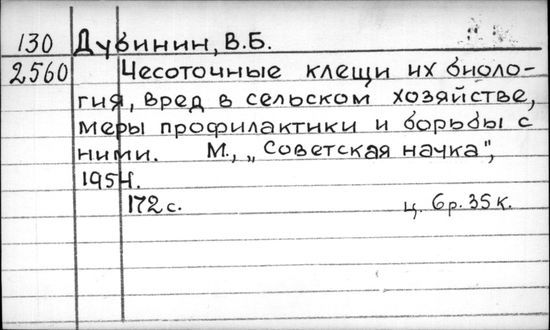 130 Дубинин, В.Б.
2560 Чесоточные клещи их биоло-
гия, вред в сельском хозяйстве,
меры профилактики и борьбы с
ними. М., „Советская наука",
1954.
172 с. ц. 6 р. 35 к.